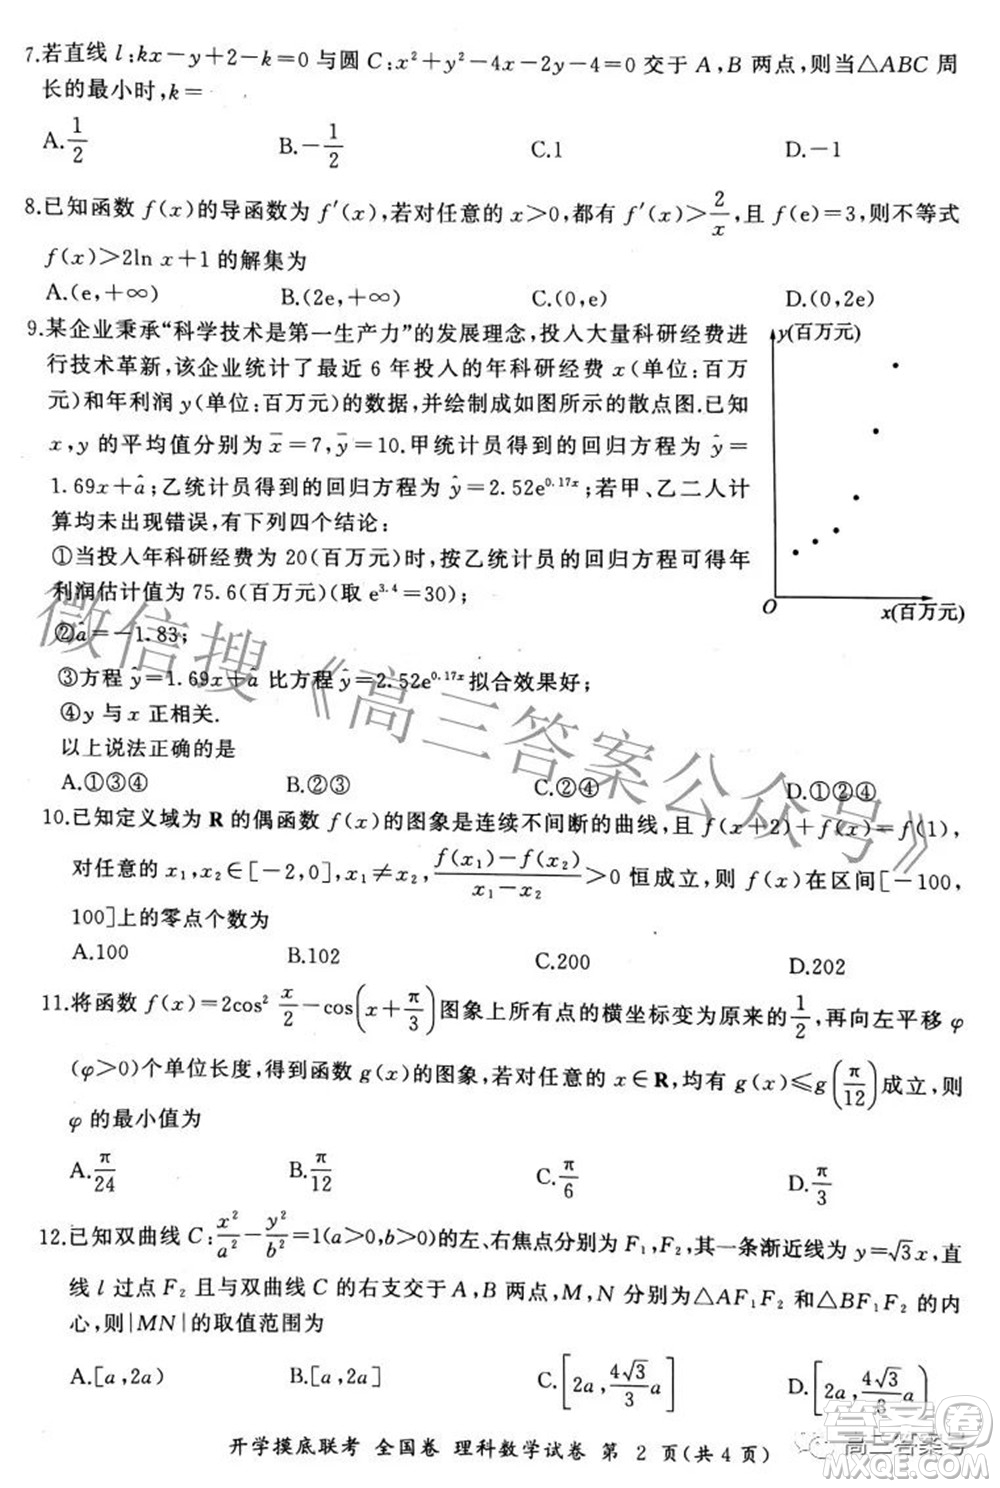 7.若直线 l:kx-y+2-k=0 与圆 C:x²+y²-4x-2y-4=0 交于 A,B 两点,则当△ABC 周
长的最小时,k=
A.1/2 B.-1/2 C.1 D.-1
8.已知函数 f(x)的导函数为 f′(x),若对任意的 x>0,都有 f′(x)>2/x,且 f(e)=3,则不等式
f(x)>2ln x+1 的解集为
A.(e,+∞) B.(2e,+∞) C.(0,e) D.(0,2e)
9.某企业秉承“科学技术是第一生产力”的发展理念,投入大量科研经费进
行技术革新,该企业统计了最近 6 年投入的年科研经费 x(单位:百万
元)和年利润 y(单位:百万元)的数据,并绘制成如图所示的散点图.已知
x,y 的平均值分别为 x̄=7,ȳ=10.甲统计员得到的回归方程为 ŷ=
1.69x+â;乙统计员得到的回归方程为 ŷ=2.52e^{0.17x};若甲、乙二人计
算均未出现错误,有下列四个结论:
①当投入年科研经费为 20(百万元)时,按乙统计员的回归方程可得年
利润估计值为 75.6(百万元)(取 e^{3.4}=30);
②â=-1.83;
③方程 ŷ=1.69x+â 比方程 ŷ=2.52e^{0.17x} 拟合效果好;
④y 与 x 正相关.
以上说法正确的是
A.①③④ B.②③ C.②④ D.①②④
y(百万元)
O
x(百万元)
10.已知定义域为 R 的偶函数 f(x)的图象是连续不间断的曲线,且 f(x+2)+f(x)=f(1),
对任意的 x₁,x₂∈[-2,0],x₁≠x₂,(f(x₁)-f(x₂))/(x₁-x₂)>0 恒成立,则 f(x)在区间[-100,
100]上的零点个数为
A.100 B.102 C.200 D.202
11.将函数 f(x)=2cos² x/2-cos(x+π/3)图象上所有点的横坐标变为原来的1/2,再向左平移 φ
(φ>0)个单位长度,得到函数 g(x)的图象,若对任意的 x∈R,均有 g(x)≤g(π/12)成立,则
φ 的最小值为
A.π/24 B.π/12 C.π/6 D.π/3
12.已知双曲线 C:x²/a²-y²/b²=1(a>0,b>0)的左、右焦点分别为 F₁,F₂,其一条渐近线为 y=√3x,直
线 l 过点 F₂ 且与双曲线 C 的右支交于 A,B 两点,M,N 分别为△AF₁F₂ 和△BF₁F₂ 的内
心,则|MN|的取值范围为
A.[a,2a) B.[a,2a] C.[2a,4√3/3 a] D.[2a,4√3/3 a)
开学摸底联考 全国卷 理科数学试卷 第 2 页(共 4 页)
微信搜《高三答案公众号》
高三答案号
答案卷
MXQE.COM